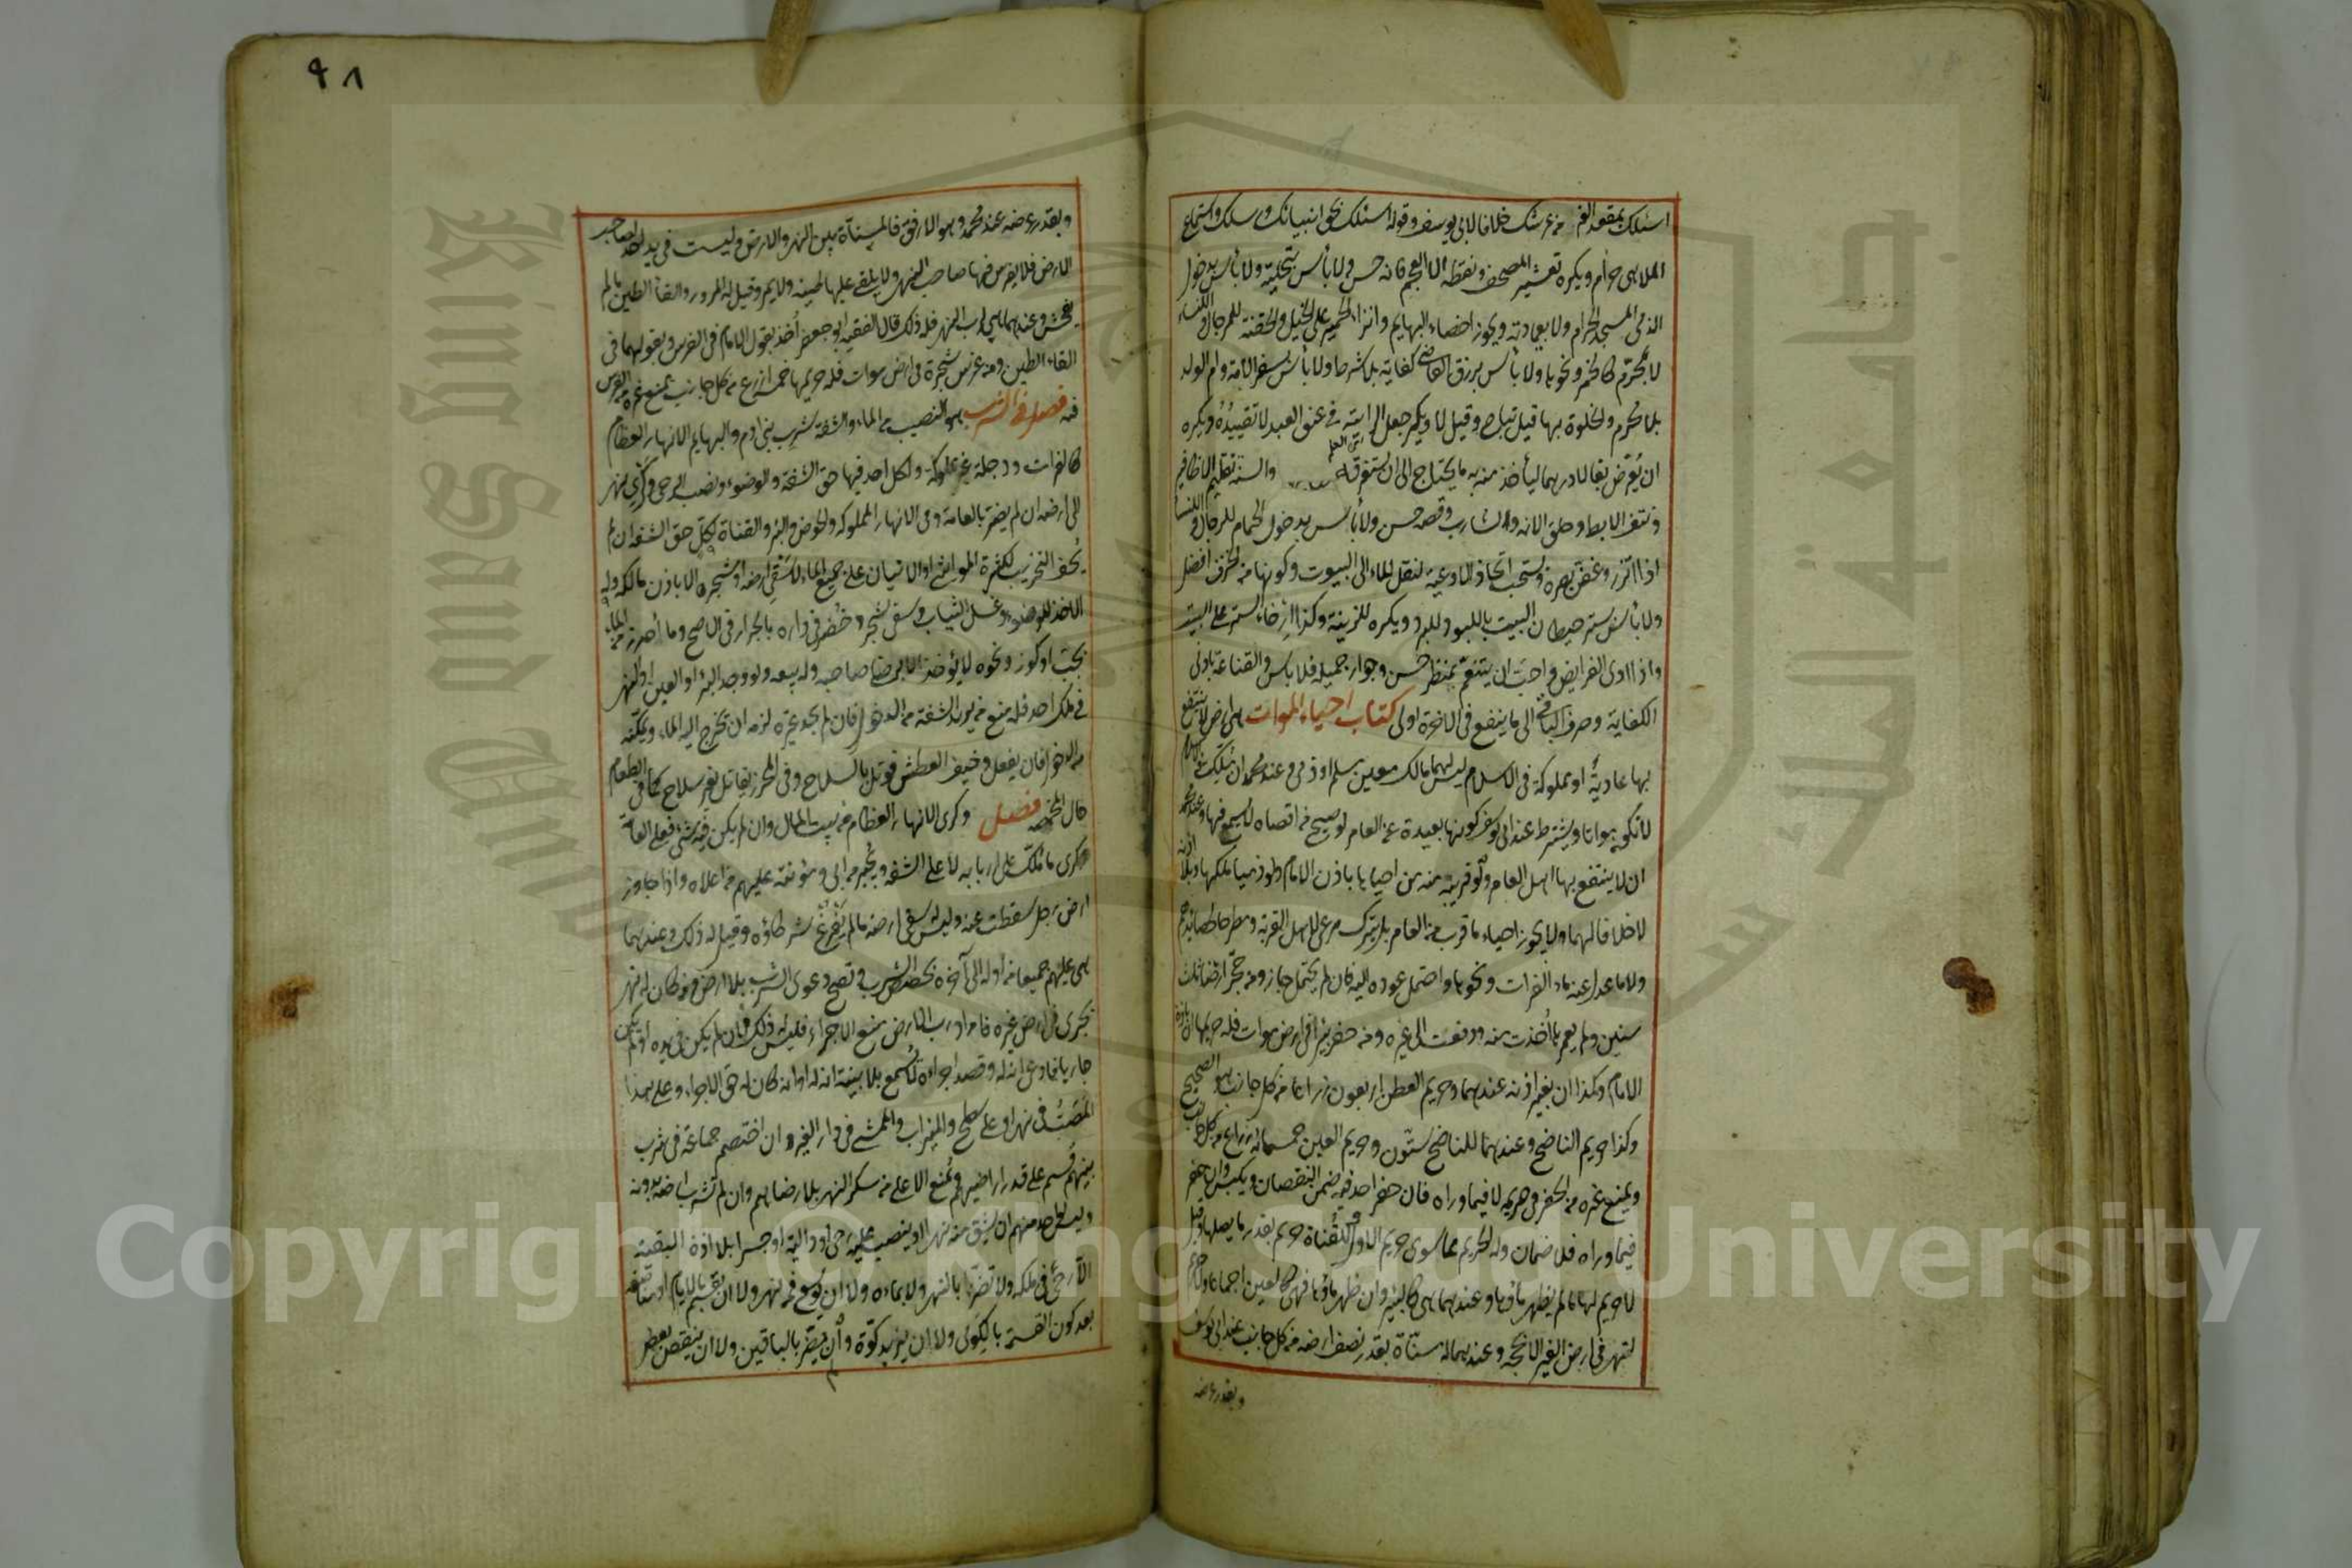 اسئلك بمقعد العز من عرشك خلافا لابي يوسف وقوله اسئلك بحق انبيائك ورسلك واستماع
الملاهي حرام ويكره تعشير المصحف ونقطه الا للعجم فانه حسن ولا بأس بتحليته ولا بأس بدخول
الذمي المسجد الحرام ولا بعيادته ويجوز اخصاء البهايم وانزاء الحمير على الخيل والحقنة للرجال والنساء
لا بمحرم كالخمر ونحوها ولا بأس برزق القاضي كفاية بلا شرط ولا بأس بسفر الامة وام الولد
بلا محرم والخلوة بها قيل تباح وقيل لا ويكره جعل الراية في عنق العبد لا تقييده ويكره
ان يقرض بقالا درهما ليأخذ منه به ما يحتاج الى ان يستغرقه والسنة تقليم الاظافير
ونتف الابط وحلق العانة والشارب وقصه حسن ولا بأس بدخول الحمام للرجال والنساء
اذا اتزر وغض بصره ويستحب اتخاذ الاوعية لنقل الماء الى البيوت وكونها من الخزف افضل
ولا بأس بستر حيطان البيت باللبود للبرد ويكره للزينة وكذا ارخاء الستر على البيت
واذا ادى الفرايض واحب ان يتنعم بمنظر حسن وجوار جميلة فلا بأس والقناعة بادنى
الكفاية وصرف الباقي الى ما ينفع في الآخرة اولى كتاب احياء الموات هي ارض لا ينتفع
بها عادية او مملوكة في الاسلام ليس لها مالك معين مسلم او ذمي وعند محمد ان ملكت في الاسلام
لا تكون مواتا ويشترط عند ابي يوسف كونها بعيدة عن العامر لو صيح من اقصاه لا يسمع فيها وعند محمد
ان لا ينتفع بها اهل العامر ولو قريبة منه من احياها باذن الامام ولو ذميا ملكها وبلا اذنه
لا خلافا لهما ولا يجوز احياء ما قرب من العامر بل يترك مرعى لاهل القرية ومطرحا لحصايدهم
ولا ما عدل عنه ماء الفرات ونحوها واحتمل عوده اليه فان لم يحتمل جاز ومن حجر ارضا ثلث
سنين ولم يعمرها أخذت منه ودفعت الى غيره ومن حفر بئرا في ارض موات فله حريمها ان باذن
الامام وكذا ان بغير اذنه عندهما وحريم العطن اربعون ذراعا من كل جانب هو الصحيح
وكذا حريم الناضح وعندهما للناضح ستون وحريم العين خمسمائة ذراع من كل جانب
ويمنع غيره من الحفر في حريمه لا فيما وراه فان حفر احد فيه ضمن النقصان ويكبس وان حفر
فيما وراه فلا ضمان وله الحريم مما سوى حريم الاول وللقناة حريم بقدر ما يصلها وقيل
لا حريم لها ما لم يظهر ماؤها وعندهما هي كالبئر وان ظهر ماؤها فهي كالعين اجماعا ولا حريم
لنهر في ارض الغير الا بحجة وعندهما له مسناة بقدر نصف ارضه من كل جانب عند ابي يوسف
وبقدر عرضه
٩٨
وبقدر عرضه عند محمد وهو الارفق فالمسناة بين النهر والارض وليست في يد احد لصاحب
الارض فلا يغرس فيها صاحب النهر ولا يلقي عليها طينه ولا يمر وقيل له المرور والقاء الطين ما لم
يفحش وعندهما هي لرب النهر فله ذلك قال الفقيه ابو جعفر أخذ بقول الامام في الغرس وبقولهما في
القاء الطين ومن غرس شجرة في ارض موات فله حريمها خمسة اذرع من كل جانب يمنع غيره من الغرس
فيه فصل في الشرب هو النصيب من الماء والشفة شرب بني ادم والبهايم الانهار العظام
كالفرات ودجلة غير مملوكة ولكل احد فيها حق الشفة والوضوء ونصب الرحى وكري نهر
الى ارضه ان لم يضر بالعامة وفي الانهار المملوكة والحوض والبئر والقناة لكل حق الشفة ان لم
يخف التخريب لكثرة المواشي او الاتيان على جميع الماء لا سقي ارضه او شجره الا باذن مالكه وله
الاخذ للوضوء وغسل الثياب وسقي شجر وخضر في داره بالجرار في الاصح وما أحرز من الماء
بجب او كوز ونحوه لا يؤخذ الا برضى صاحبه وله بيعه ولو وجد البئر او العين او النهر
في ملك احد فله منع من يريد الشفة من الدخول فان لم يجد غيره لزمه ان يخرج اليه الماء ويمكنه
من الدخول فان لم يفعل وخيف العطش قوتل بالسلاح وفي المحرز يقاتل بغير سلاح كما في الطعام
حال المخمصة فصل وكري الانهار العظام من بيت المال وان لم يكن فيه شئ فعلى العامة
وكري ما ملك على اربابه لا على الشفة ويجبر من ابى ومؤنته عليهم من اعلاه واذا جاوز
ارض رجل سقطت عنه وليس له سقي ارضه ما لم يفرغ شركاؤه وقيل له ذلك وعندهما
هي عليهم جميعا من اوله الى آخره بحصص الشرب وتصح دعوى الشرب بلا ارض ومن كان له نهر
يجري في ارض غيره فاراد رب الارض منع الاجراء فليس له ذلك فان لم يكن في يده او لم يكن
جاريا فادعى انه له وقصد اجراءه لا يسمع بلا بينة انه له او انه كان له حق الاجراء وعلى هذا
المصب في نهر او على سطح والميزاب والممشى في دار الغير وان اختصم جماعة في شرب
بينهم قسم على قدر اراضيهم ويمنع الاعلى من سكر النهر بلا رضاهم وان لم تشرب ارضه بدونه
وليس لاحد منهم ان يشق منه نهرا او ينصب عليه رحى او دالية او جسرا بلا اذن البقية
الا رحى في ملكه ولا تضر بالنهر ولا بمائه ولا ان يوسع فم النهر ولا ان يقسم بالايام او مناصفة
بعد كون القسمة بالكوى ولا ان يزيد كوة وان لم يضر بالباقين ولا ان ينقص بعض